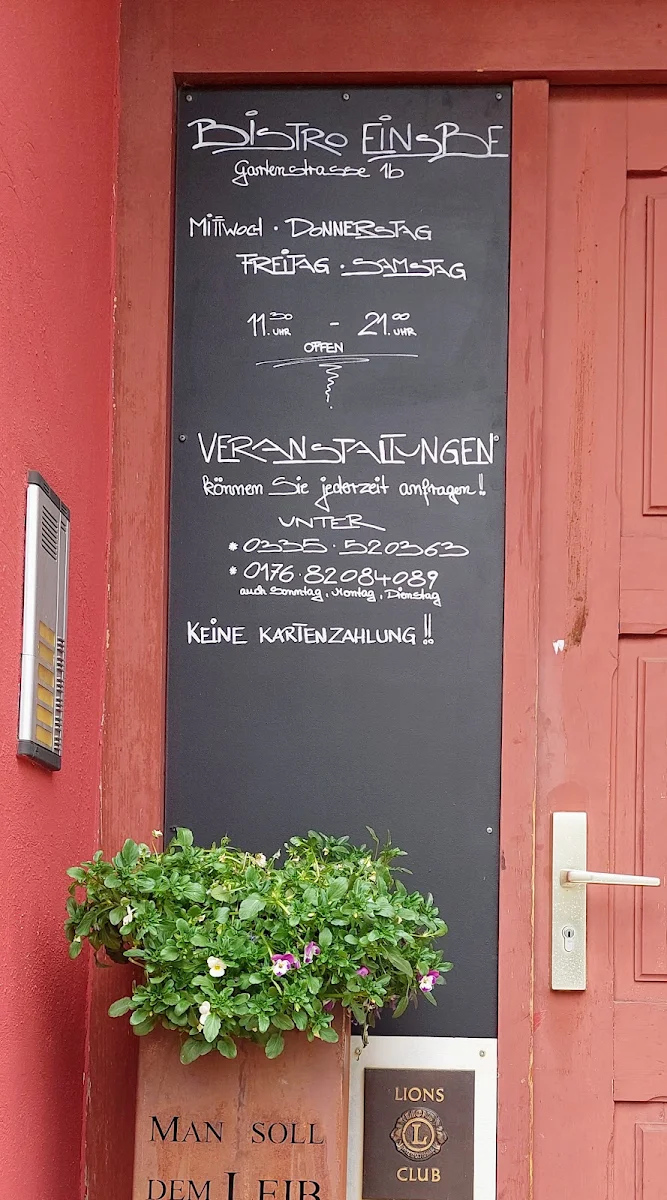 BiSTRO EiNSBE
Gartenstrasse 1b
MiTTwoch · DONNERSTAG
FREiTAG · SAMSTAG
11.30 UHR - 21.00 UHR
OFFEN
VERANSTALTUNGEN
können Sie jederzeit anfragen!
UNTER
* 0335 · 520363
* 0176 · 82084089
auch Sonntag, Montag, Dienstag
KEiNE KARTENZAHLUNG!!
LIONS
L
CLUB
MAN SOLL
DEM LEIB